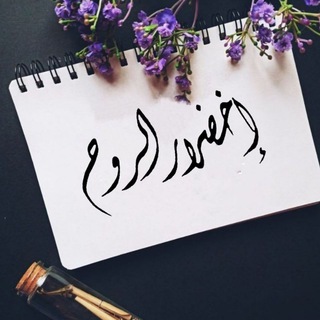 إخضرار الروح